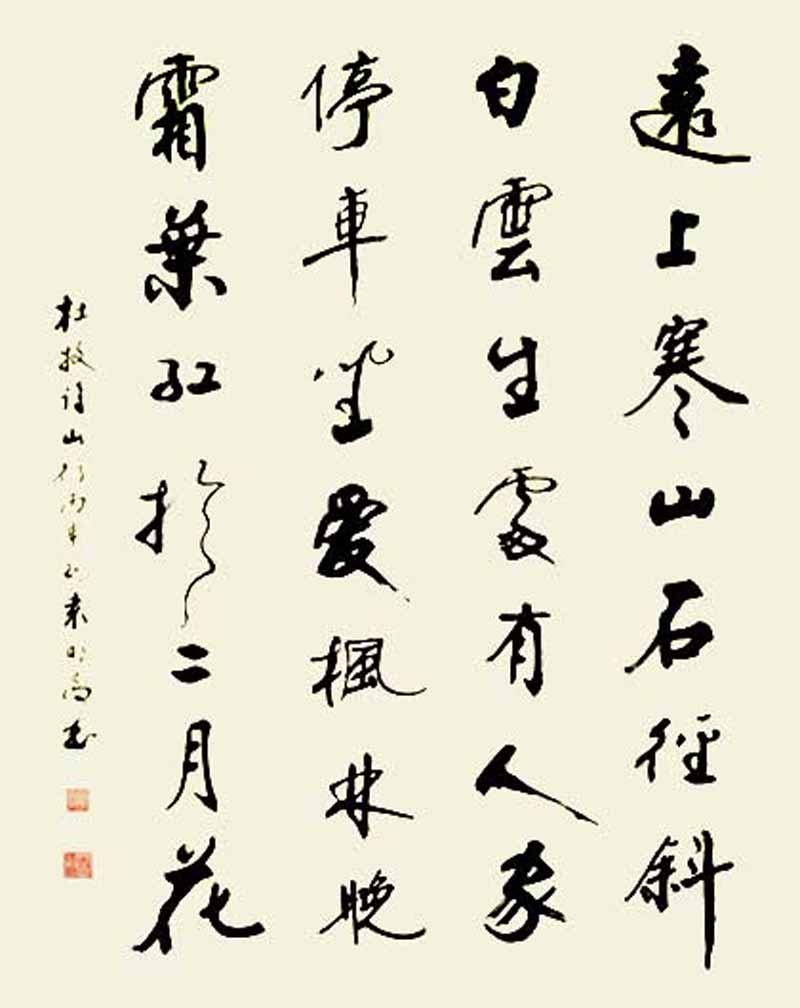 遠上寒山石徑斜
白雲生處有人家
停車坐愛楓林晚
霜葉紅於二月花
杜牧詩山行丙年